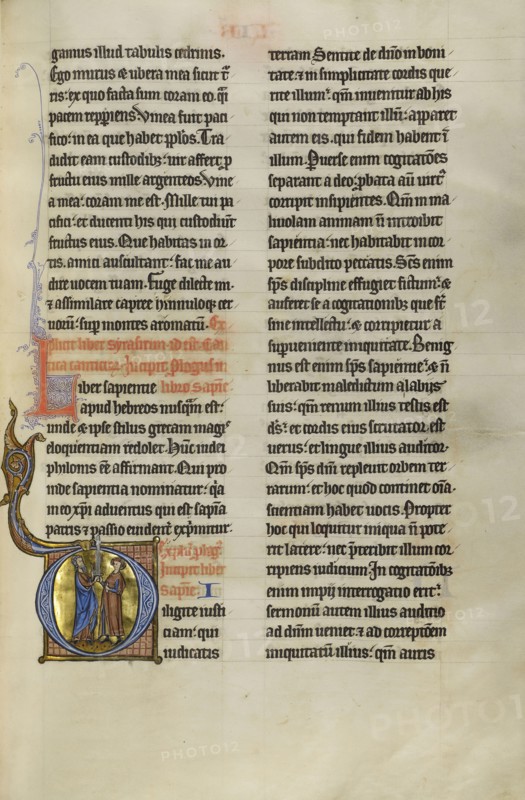 gamus illud tabulis cedrinis.
Ego murus & ubera mea sicut t̄
ris: ex quo facta sum coram eo. q̄i
pacem repp̄iens. Vinea fuit paci
fico: in ea que habet pp̄los. Tra
didit eam custodibȝ: uir affert p̱
fructu eius mille argenteos. Vine
a mea: coram me est. Mille tui pa
cifici: et ducenti his qui custodiūt
fructus eius. Que habitas in or
tis. amici auscultant: fac me au
dire uocem tuam. Fuge dilecte mi.
⁊ assimilare capree hinnuloqȝ cer
uorū: sup̱ montes aromatū. Ex
plicit liber
Incipit
Liber sapientie libro sapie
apud hebreos nusq̄m est:
unde & ipse stilus grecam magiˢ
eloquentiam redolet. Hūc iudei
philonis eē affirmant. Qui pro
inde sapientia nominatur: q̄a
in eo xp̄i aduentus qui est sapīa
patris ⁊ passio euident̄ exp̄mitur.
Incipit liber
sapīe. I
Diligite iusti
ciam: qui
iudicatis
terram Sentite de dn̄o in boni
tate. ⁊ in simplicitate cordis que
rite illum: qm̄ inuenitur ab his
qui non temptant illū: apparet
autem eis. qui fidem habent ī
illum. Peruerse enim cogitatōes
separant a deo: p̱bata aū uirtˢ
corripit insipientes. Qm̄ in ma
liuolam animam n̄ introibit
sapientia: nec habitabit in cor
pore subdito peccatis. Sc̄s enim
sp̄s discipline effugiet fictum: &
auferet se a cogitationibȝ que st̄
sine intellectu: & corripietur a
sup̱ueniente iniquitate. Benig
nus est enim sp̄s sapientie: & n̄
liberabit maledictum a labijs
suis: qm̄ renum illius testis est
ds̄: et cordis eius scrutator est
uerus: et lingue illius auditor.
Qm̄ sp̄s dn̄i repleuit orbem ter
rarum: et hoc quod continet oīa.
scientiam habet uocis. Propter
hoc qui loquitur iniqua n̄ pote
rit latere: nec p̄teribit illum cor
ripiens iudicium. In cogitatōibȝ
enim impij interrogatio erit:
sermonū autem illius auditio
ad dn̄m ueniet. ⁊ ad correptōem
iniquitatū illius: qm̄ auris
PHOTO12